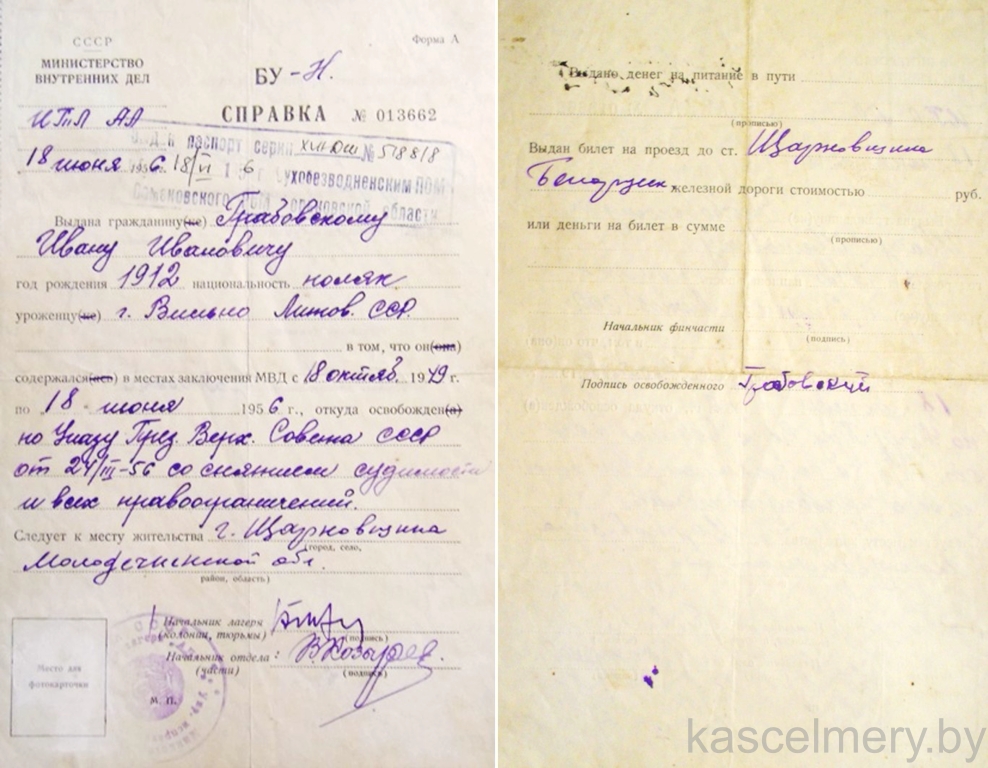 СССР
Форма А
МИНИСТЕРСТВО
ВНУТРЕННИХ ДЕЛ
БУ-Н.
СПРАВКА № 013662
ИТЛ АЛ
паспорт серии № 518818
18 июня 1956 18/VI 6
Сухобезводненским ПОМ
области
Выдана гражданину(ке) Грабовскому
Ивану Ивановичу
год рождения 1912 национальность поляк
уроженцу(ке) г. Вильно Литов. ССР.
в том, что он(она)
содержался(ась) в местах заключения МВД с 18 октяб. 1949 г.
по "18 июня 1956 г., откуда освобожден(а)
по Указу През. Верх. Совета СССР
от 24/III-56 со снятием судимости
и всех правоограничений.
Следует к месту жительства г. Щарновщина
(город, село,
Молодечненской обл.
район, область)
Начальник лагеря
(колонии, тюрьмы)
(подпись)
Начальник отдела:
(части)
(подпись)
Место для
фотокарточки
М. П.
Выдано денег на питание в пути
(прописью)
Выдан билет на проезд до ст. Щарновщина
железной дороги стоимостью руб.
или деньги на билет в сумме
(прописью)
Начальник финчасти
(подпись)
Подпись освобожденного Грабовский
kascelmery.by